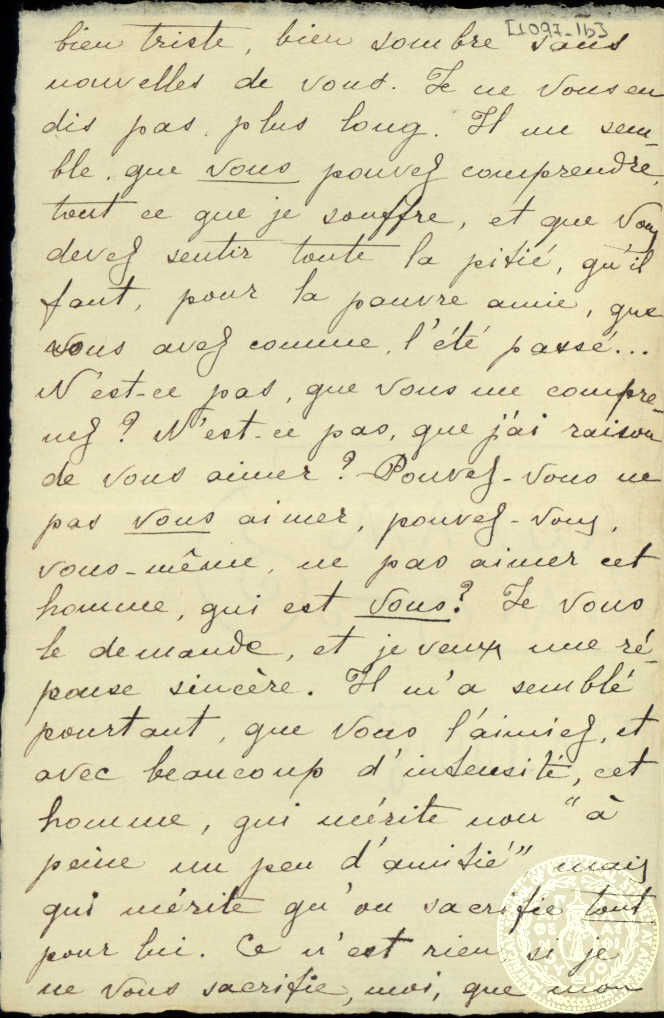 [1097-IIb]
bien triste, bien sombre sans
nouvelles de vous. Je ne vous en
dis pas plus long. Il me sem-
ble, que vous pouvez comprendre,
tout ce que je souffre, et que Vous
devez sentir toute la pitié, qu'il
faut, pour la pauvre amie, que
vous avez comme, l'été passé...
N'est-ce pas, que vous me compre-
nez? N'est-ce pas, que j'ai raison
de vous aimer? Pouvez-vous ne
pas vous aimer, pouvez-vous,
vous-même, ne pas aimer cet
homme, qui est vous? Je vous
le demande, et je veux une ré-
ponse sincère. Il m'a semblé
pourtant, que vous l'aimiez, et
avec beaucoup d'intensité, cet
homme, qui mérite non "à
peine un peu d'amitié" mais
qui mérite qu'on sacrifie tout
pour lui. Ce n'est rien si je
ne vous sacrifie, moi, que mon